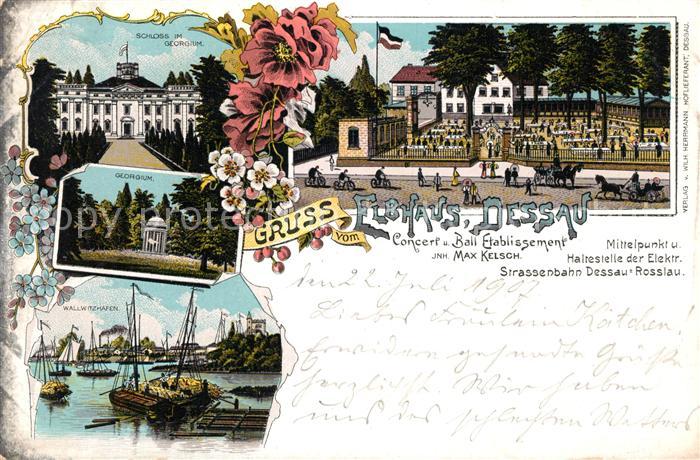 SCHLOSS IM
GEORGIUM.
GEORGIUM.
WALLWITZHAFEN.
GRUSS vom ELBHAUS, DESSAU
Concert u. Ball Etablissement
JNH. MAX KELSCH.
Mittelpunkt u.
Haltestelle der Elektr.
Strassenbahn Dessau=Rosslau.
VERLAG v. WILH. HERRMANN HOFLIEFERANT, DESSAU.
den 22. Juli 1907
Liebes Fräulein Kätchen,
Erwidern gesandte Grüße
herzlichst. Wir haben
uns des schlechten Wetters